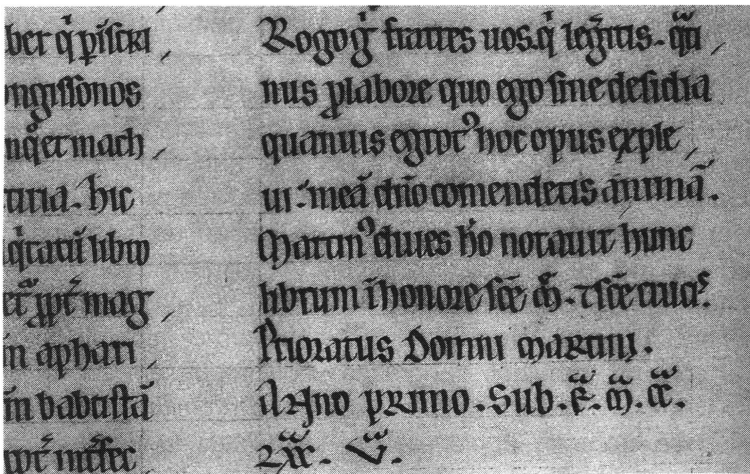 ber q̇ p̄iſcri
ngiſſonos
nq̇et mach
turia. hic
q̇tatū libro
et ꝓpt̄ mag
in aphari
im babtiſtā
ꝓpt̄ int̄fec
Rogog̃ fratres uos. q̇ leg̃itis. q̃ti
nus ꝓ labore quo ego ſine deſidia
quanuis egrot⁹ hoc opus exple
ui. meā dn̄o comendetis animā.
Martin⁹ diues h̄o notauit hunc
librum ī honore ſc̄e m̃. ⁊ ſc̄e crucis.
Prioratus Domni martini.
Anno primo. Sub. E. m. cc.
xx. V.